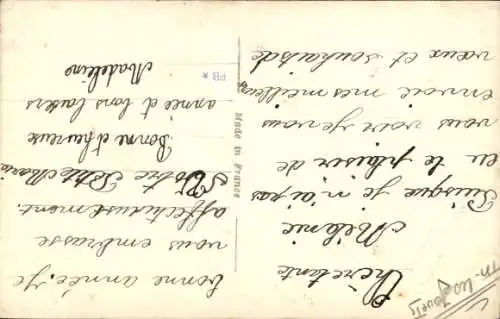 Chère tante
Mélanie
Puisque je n'ai pas
eu le plaisir de
vous voir je vous
envoie mes meilleurs
vœux et souhaits de
bonne année. Je
vous embrasse
affectueusement.
Votre Petite Maria
Bonne et heureuse
année et bons baisers
Madeleine
Made in France
PB